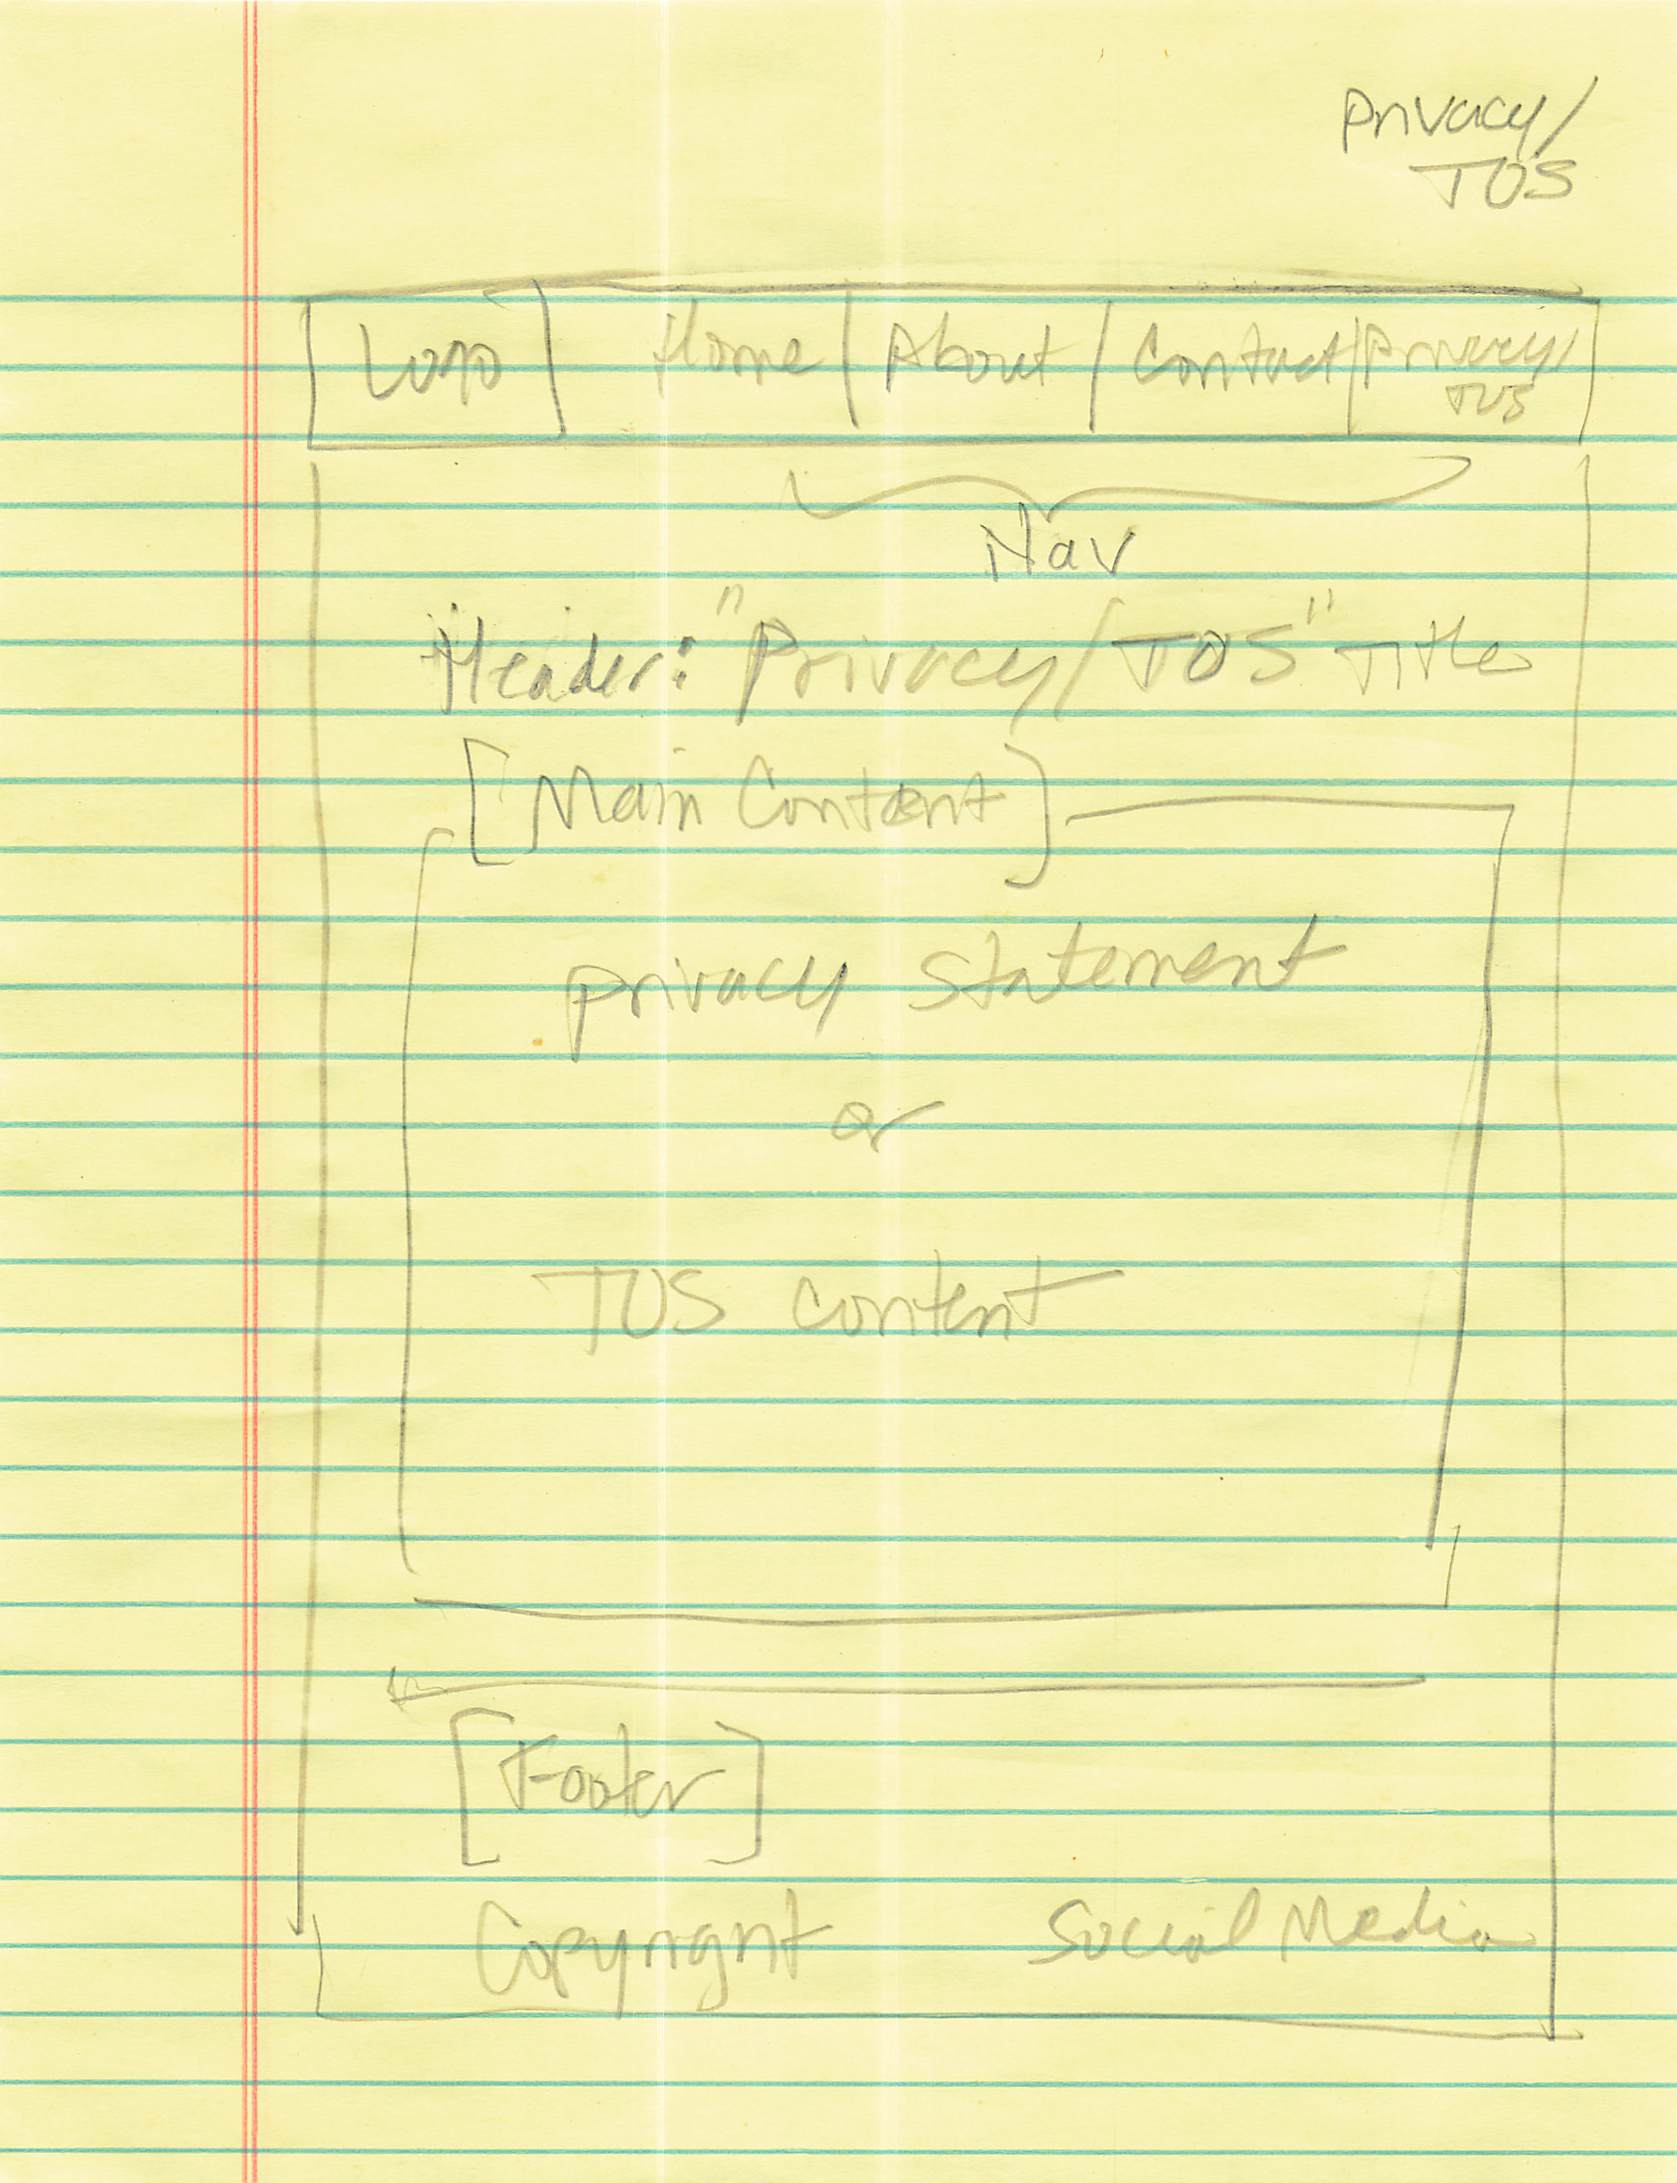 Privacy/
TOS
Logo Home | About | Contact | Privacy/
TOS
Nav
Header: "Privacy/TOS" Title
[Main Content]
privacy statement
or
TOS content
[Footer]
Copyright Social Media